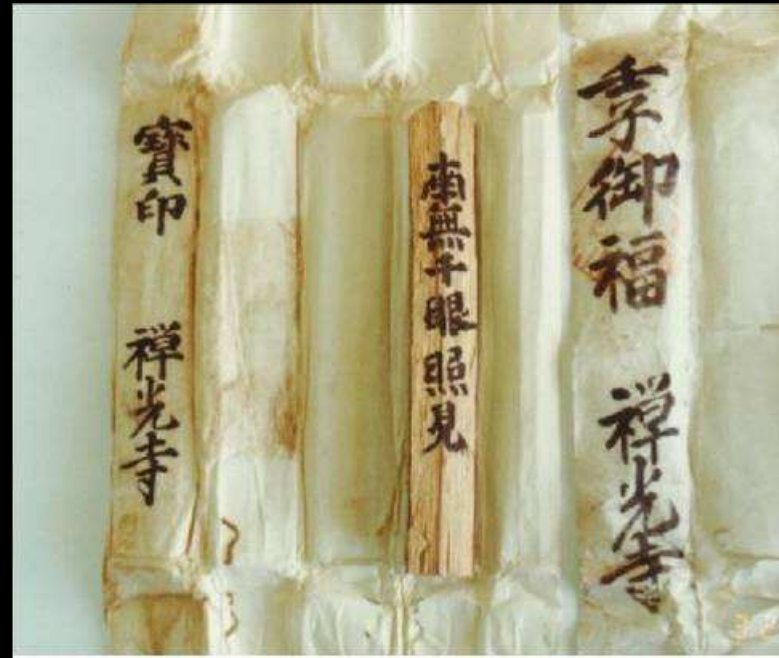 壬子御福 禅光寺
南無千眼照見
寶印 禅光寺